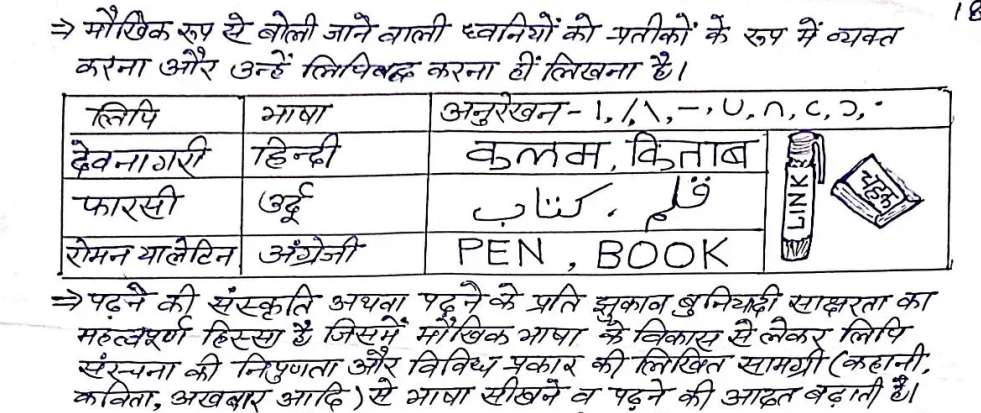 18
⇒ मौखिक रूप से बोली जाने वाली ध्वनियों को प्रतीकों के रूप में व्यक्त
करना और उन्हें लिपिबद्ध करना हीं लिखना है।
लिपि भाषा अनुरेखन - ।, /, \, -, ∪, ∩, ⊂, ⊃, ·
देवनागरी हिन्दी कलम, किताब
फारसी उर्दू قلم ، كتاب
रोमन या लेटिन अंग्रेजी PEN, BOOK
LINK
चहक
⇒ पढ़ने की संस्कृति अथवा पढ़ने के प्रति झुकाव बुनियादी साक्षरता का
महत्वपूर्ण हिस्सा है जिसमें मौखिक भाषा के विकास से लेकर लिपि
संरचना की निपुणता और विविध प्रकार की लिखित सामग्री (कहानी,
कविता, अखबार आदि) से भाषा सीखने व पढ़ने की आदत बढ़ाती है।